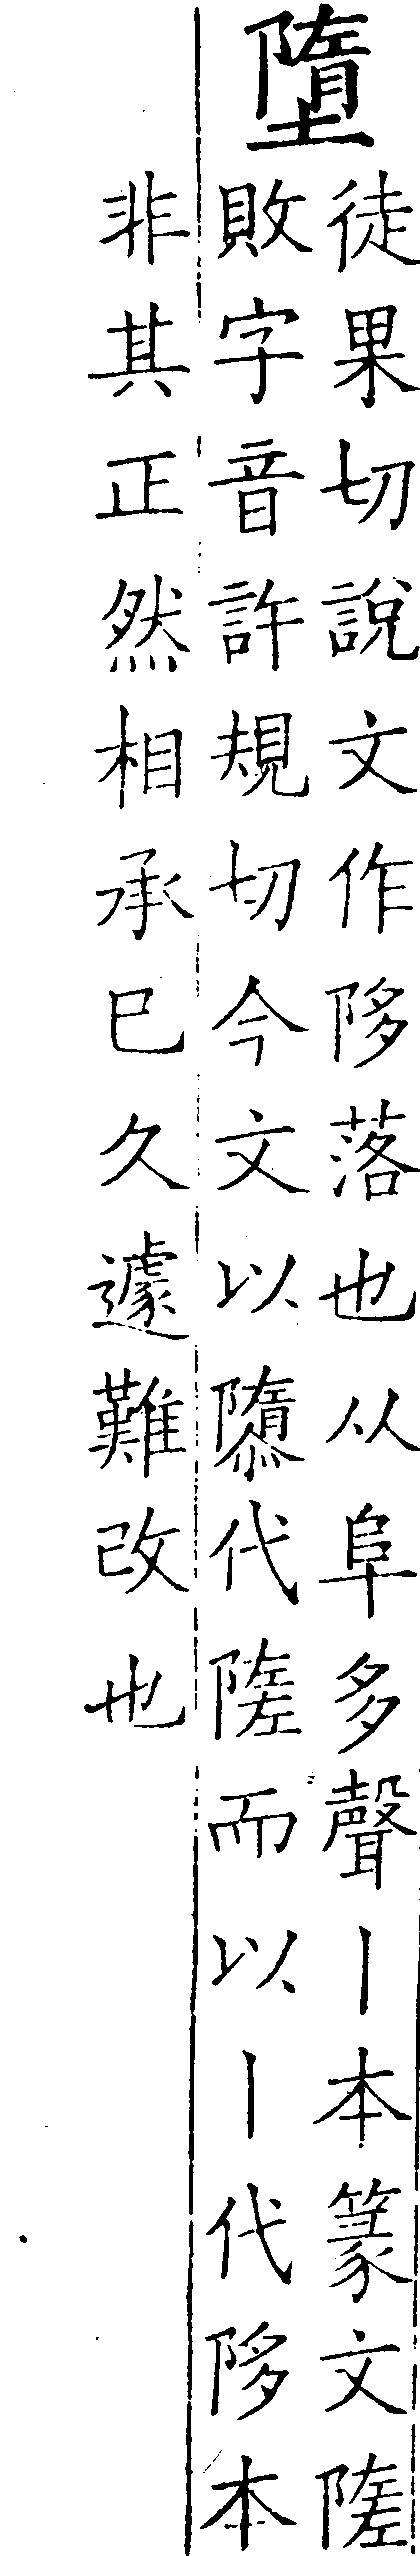 墮
徒果切說文作陊落也从阜多聲丨本篆文隓
敗字音許規切今文以隳代隓而以丨代陊本
非其正然相承巳久遽難改也